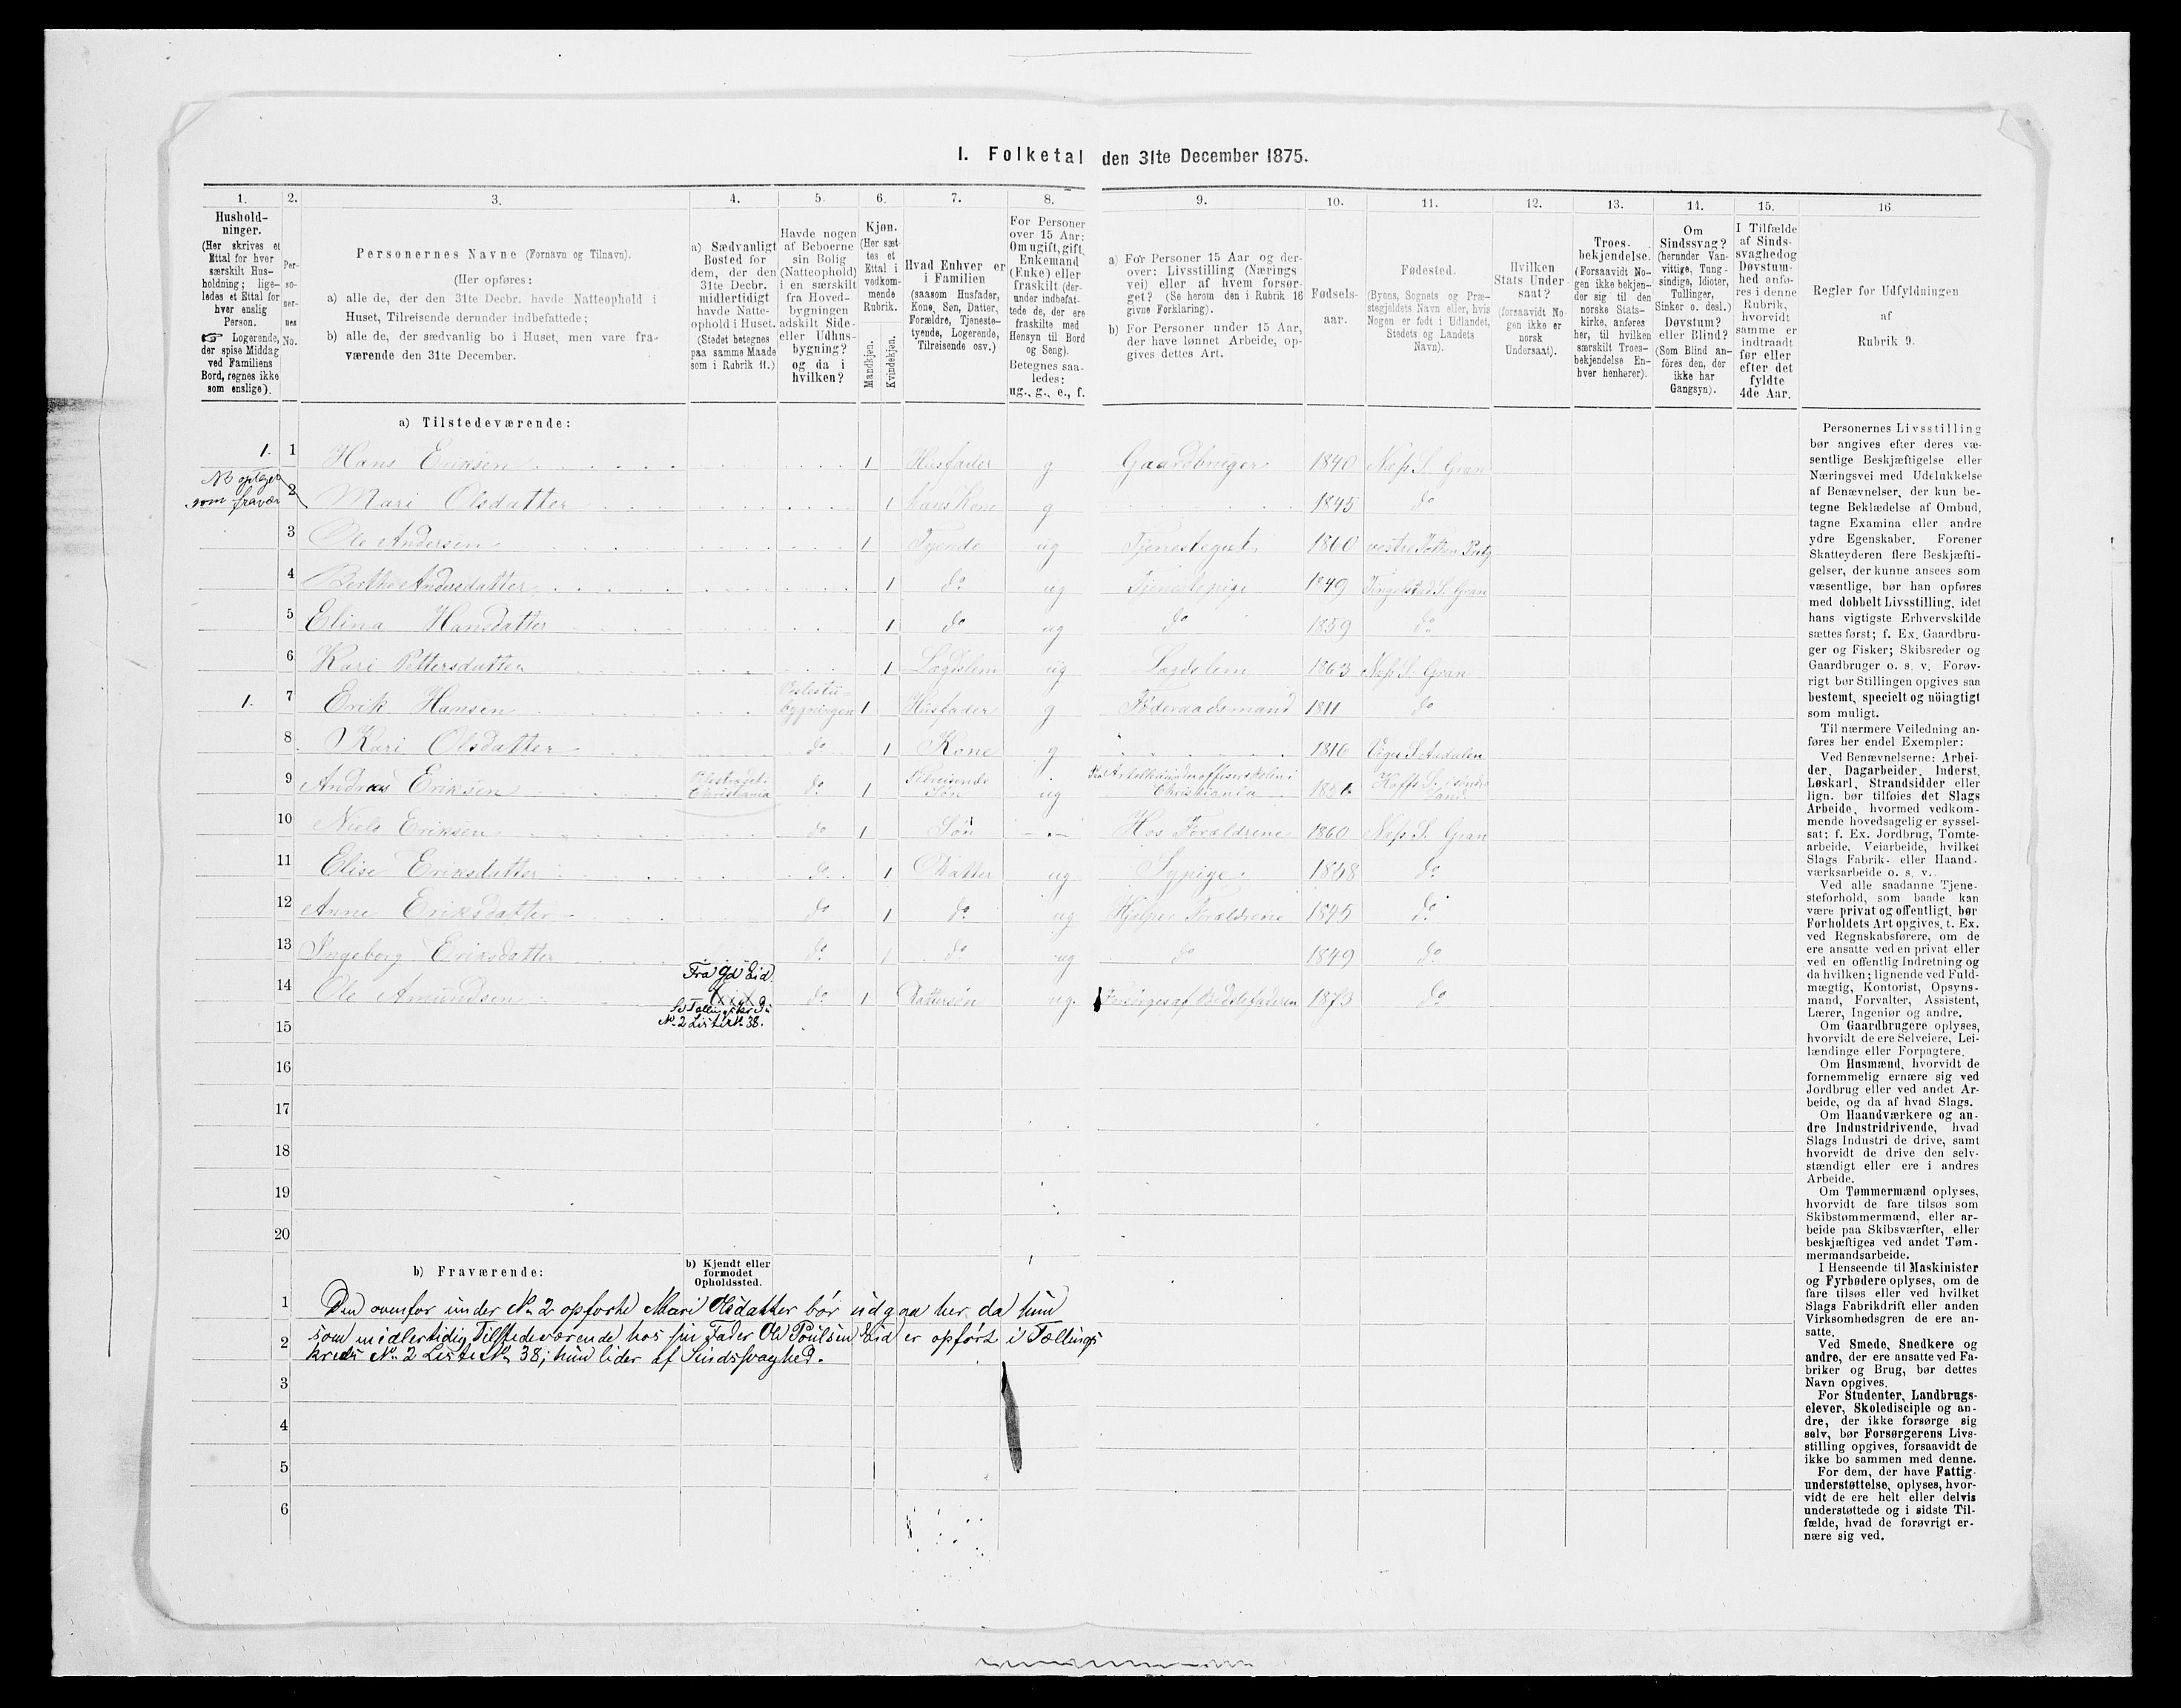 I. Folketal den 31te December 1875.
1. 2. 3. 4. 5. 6. 7. 8. 9. 10. 11. 12. 13. 14. 15. 16.
Hushold-
ninger.
(Her skrives et
Ettal for hver
særskilt Hus-
holdning; lige-
ledes et Ettal for
hver enslig
Person.
☞ Logerende,
der spise Middag
ved Familiens
Bord, regnes ikke
som enslige).
Per-
so-
ner-
nes
No.
Personernes Navne (Fornavn og Tilnavn).
(Her opføres:
a) alle de, der den 31te Decbr. havde Natteophold i
Huset, Tilreisende derunder indbefattede;
b) alle de, der sædvanlig bo i Huset, men vare fra-
værende den 31te December.
a) Sædvanligt
Bosted for
dem, der den
31te Decbr.
midlertidigt
havde Natte-
ophold i Huset.
(Stedet betegnes
paa samme Maade
som i Rubrik 11.)
Havde nogen
af Beboerne
sin Bolig
(Natteophold)
i en særskilt
fra Hoved-
bygningen
adskilt Side-
eller Udhus-
bygning?
og da i
hvilken?
Kjøn.
(Her sæt-
tes et
Ettal i
vedkom-
mende
Rubrik.
Mandkjøn.
Kvindekjøn.
Hvad Enhver er
i Familien
(saasom Husfader,
Kone, Søn, Datter,
Forældre, Tjeneste-
tyende, Logerende,
Tilreisende osv.)
For Personer
over 15 Aar:
Om ugift, gift,
Enkemand
(Enke) eller
fraskilt (der-
under indbefat-
tede de, der ere
fraskilte med
Hensyn til Bord
og Seng).
Betegnes saa-
ledes:
ug., g., e., f.
a) For Personer 15 Aar og der-
over: Livsstilling (Nærings
vei) eller af hvem forsør-
get? (Se herom den i Rubrik 16
givne Forklaring).
b) For Personer under 15 Aar,
der have lønnet Arbeide, op-
gives dettes Art.
Fødsels-
aar.
Fødested.
(Byens, Sognets og Præ-
stegjeldets Navn eller, hvis
Nogen er født i Udlandet,
Stedets og Landets
Navn).
Hvilken
Stats Under
saat?
(forsaavidt No-
gen ikke er
norsk
Undersaat).
Troes-
bekjendelse.
(Forsaavidt No-
gen ikke bekjen-
der sig til den
norske Stats-
kirke, anføres
her, til hvilken
særskilt Troes-
bekjendelse En-
hver henhører).
Om
Sindssvag?
(herunder Van-
vittige, Tung-
sindige, Idioter,
Tullinger,
Sinker o. desl.)
Døvstum?
eller Blind?
(Som Blind an-
føres den, der
ikke har
Gangsyn).
I Tilfælde
af Sinds-
svaghed og
Døvstum-
hed anfø-
res i denne
Rubrik,
hvorvidt
samme er
indtraadt
før eller
efter det
fyldte
4de Aar.
Regler for Udfyldningen
af
Rubrik 9.
a) Tilstedeværende:
1. 1 Hans Eriksen 1 Husfader g Gaardbruger 1840 Næs S. Gran
NB optages
som fravær
2 Mari Olsdatter 1 hans Kone g 1845 do
3 Ole Andersen 1 Tyende ug Tjenestegut 1860 vestre Toten Pretg
4 Berthe Andersdatter 1 do ug Tjenestepige 1849 Tingelstad S. Gran
5 Elina Hansdatter 1 do ug do 1859 do
6 Kari Pettersdatter 1 Lægdslem ug Lægdslem 1863 Næs S. Gran
1. 7 Erik Hansen bygningen 1 Husfader g Føderaadsmand 1811 do
8 Kari Olsdatter do 1 Kone g 1816 S. Aadalen
9 Andreas Eriksen Christiania do 1 Tilreisende Søn ug Christiania Hoffs S. i søndre Land
10 Niels Eriksen do 1 Søn Hos Forældrene 1860 Næs S. Gran
11 Elise Eriksdatter do 1 Datter ug Sypige 1858 do
12 Anne Eriksdatter do 1 do ug Hjelper Forældrene 1845 do
13 Ingeborg Eriksdatter do 1 do ug do 1849 do
14 Ole Amundsen Fra Gd Eid. do 1 Dattersøn ug. Forsørges af Bedstefaderen 1873 do
No 2 Liste No 38.
15
16
17
18
19
20
b) Fraværende:
b) Kjendt eller
formodet
Opholdssted.
1 Den ovenfor under No 2 opførte Mari Olsdatter bør udgaa her, da hun
2 som midlertidig Tilstedeværende hos sin Fader Ole Poulsen Eid er opført i Tællings
kreds No 2 Liste No 38; hun lider af Sindssvaghed.
3
4
5
6
Personernes Livsstilling
bør angives efter deres væ-
sentlige Beskjæftigelse eller
Næringsvei med Udelukkelse
af Benævnelser, der kun be-
tegne Beklædelse af Ombud,
tagne Examina eller andre
ydre Egenskaber. Forener
Skatteyderen flere Beskjæfti-
gelser, der kunne ansees som
væsentlige, bør han opføres
med dobbelt Livsstilling, idet
hans vigtigste Erhvervskilde
sættes først; f. Ex. Gaardbru-
ger og Fisker; Skibsreder og
Gaardbruger o. s. v. Forøv-
rigt bør Stillingen opgives saa
bestemt, specielt og nöiagtigt
som muligt.
Til nærmere Veiledning an-
føres her endel Exempler:
Ved Benævnelserne: Arbei-
der, Dagarbeider, Inderst,
Løskarl, Strandsidder eller
lign. bør tilføies det Slags
Arbeide, hvormed vedkom-
mende hovedsagelig er syssel-
sat; f. Ex. Jordbrug, Tomte-
arbeide, Veiarbeide, hvilket
Slags Fabrik- eller Haand-
værksarbeide o. s. v.
Ved alle saadanne Tjene-
steforhold, som baade kan
være privat og offentligt, bør
Forholdets Art opgives, t. Ex.
ved Regnskabsførere, om de
ere ansatte ved en privat eller
ved en offentlig Indretning og
da hvilken; lignende ved Fuld-
mægtig, Kontorist, Opsyns-
mand, Forvalter, Assistent,
Lærer, Ingeniør og andre.
Om Gaardbrugere oplyses,
hvorvidt de ere Selveiere, Lei-
lændinge eller Forpagtere.
Om Husmænd, hvorvidt de
fornemmelig ernære sig ved
Jordbrug eller ved andet Ar-
beide, og da af hvad Slags.
Om Haandværkere og an-
dre Industridrivende, hvad
Slags Industri de drive, samt
hvorvidt de drive den selv-
stændigt eller ere i andres
Arbeide.
Om Tømmermænd oplyses,
hvorvidt de fare tilsøs som
Skibstømmermænd, eller ar-
beide paa Skibsværfter, eller
beskjæftiges ved andet Tøm-
mermandsarbeide.
I Henseende til Maskinister
og Fyrbødere oplyses, om de
fare tilsøs eller ved hvilket
Slags Fabrikdrift eller anden
Virksomhedsgren de ere an-
satte.
Ved Smede, Snedkere og
andre, der ere ansatte ved Fa-
briker og Brug, bør dettes
Navn opgives.
For Studenter, Landbrugs-
elever, Skoledisciple og an-
dre, der ikke forsørge sig
selv, bør Forsørgerens Livs-
stilling opgives, forsaavidt de
ikke bo sammen med denne.
For dem, der have Fattig-
understøttelse, oplyses, hvor-
vidt de ere helt eller delvis
understøttede og i sidste Til-
fælde, hvad de forøvrigt er-
nære sig ved.